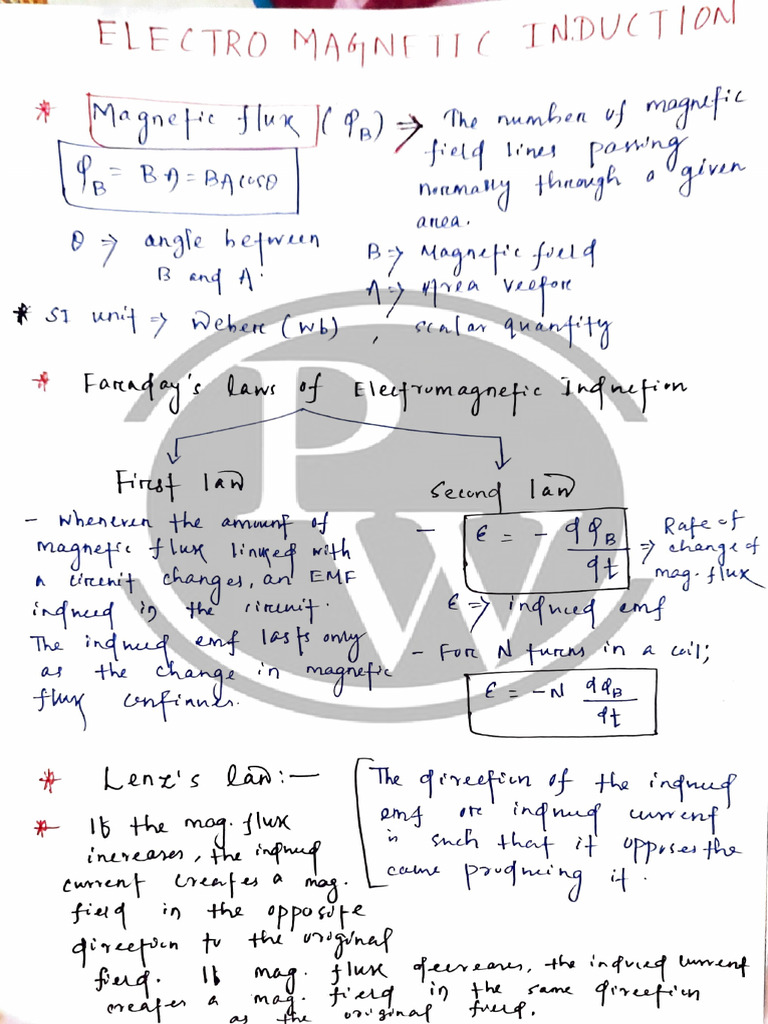 ELECTRO MAGNETIC INDUCTION
* Magnetic flux (φB) ⇒ The number of magnetic
field lines passing
normally through a given
area.
φB = BA = BA cosθ
θ ⇒ angle between
B and A.
B ⇒ Magnetic field
A ⇒ Area vector
* SI unit ⇒ Weber (Wb), scalar quantity
* Faraday's laws of Electromagnetic Induction
First law
- Whenever the amount of
magnetic flux linked with
a circuit changes, an EMF
induced in the circuit.
The induced emf lasts only
as the change in magnetic
flux continues.
Second law
- ε = - dφB/dt ⇒ Rate of
change of
mag. flux
ε ⇒ induced emf
- For N turns in a coil;
ε = -N dφB/dt
* Lenz's law:-
The direction of the induced
emf or induced current
is such that it opposes the
cause producing it.
* If the mag. flux
increases, the induced
current creates a mag.
field in the opposite
direction to the original
field. If mag. flux decreases, the induced current
creates a mag. field in the same direction
as the original field.
PW